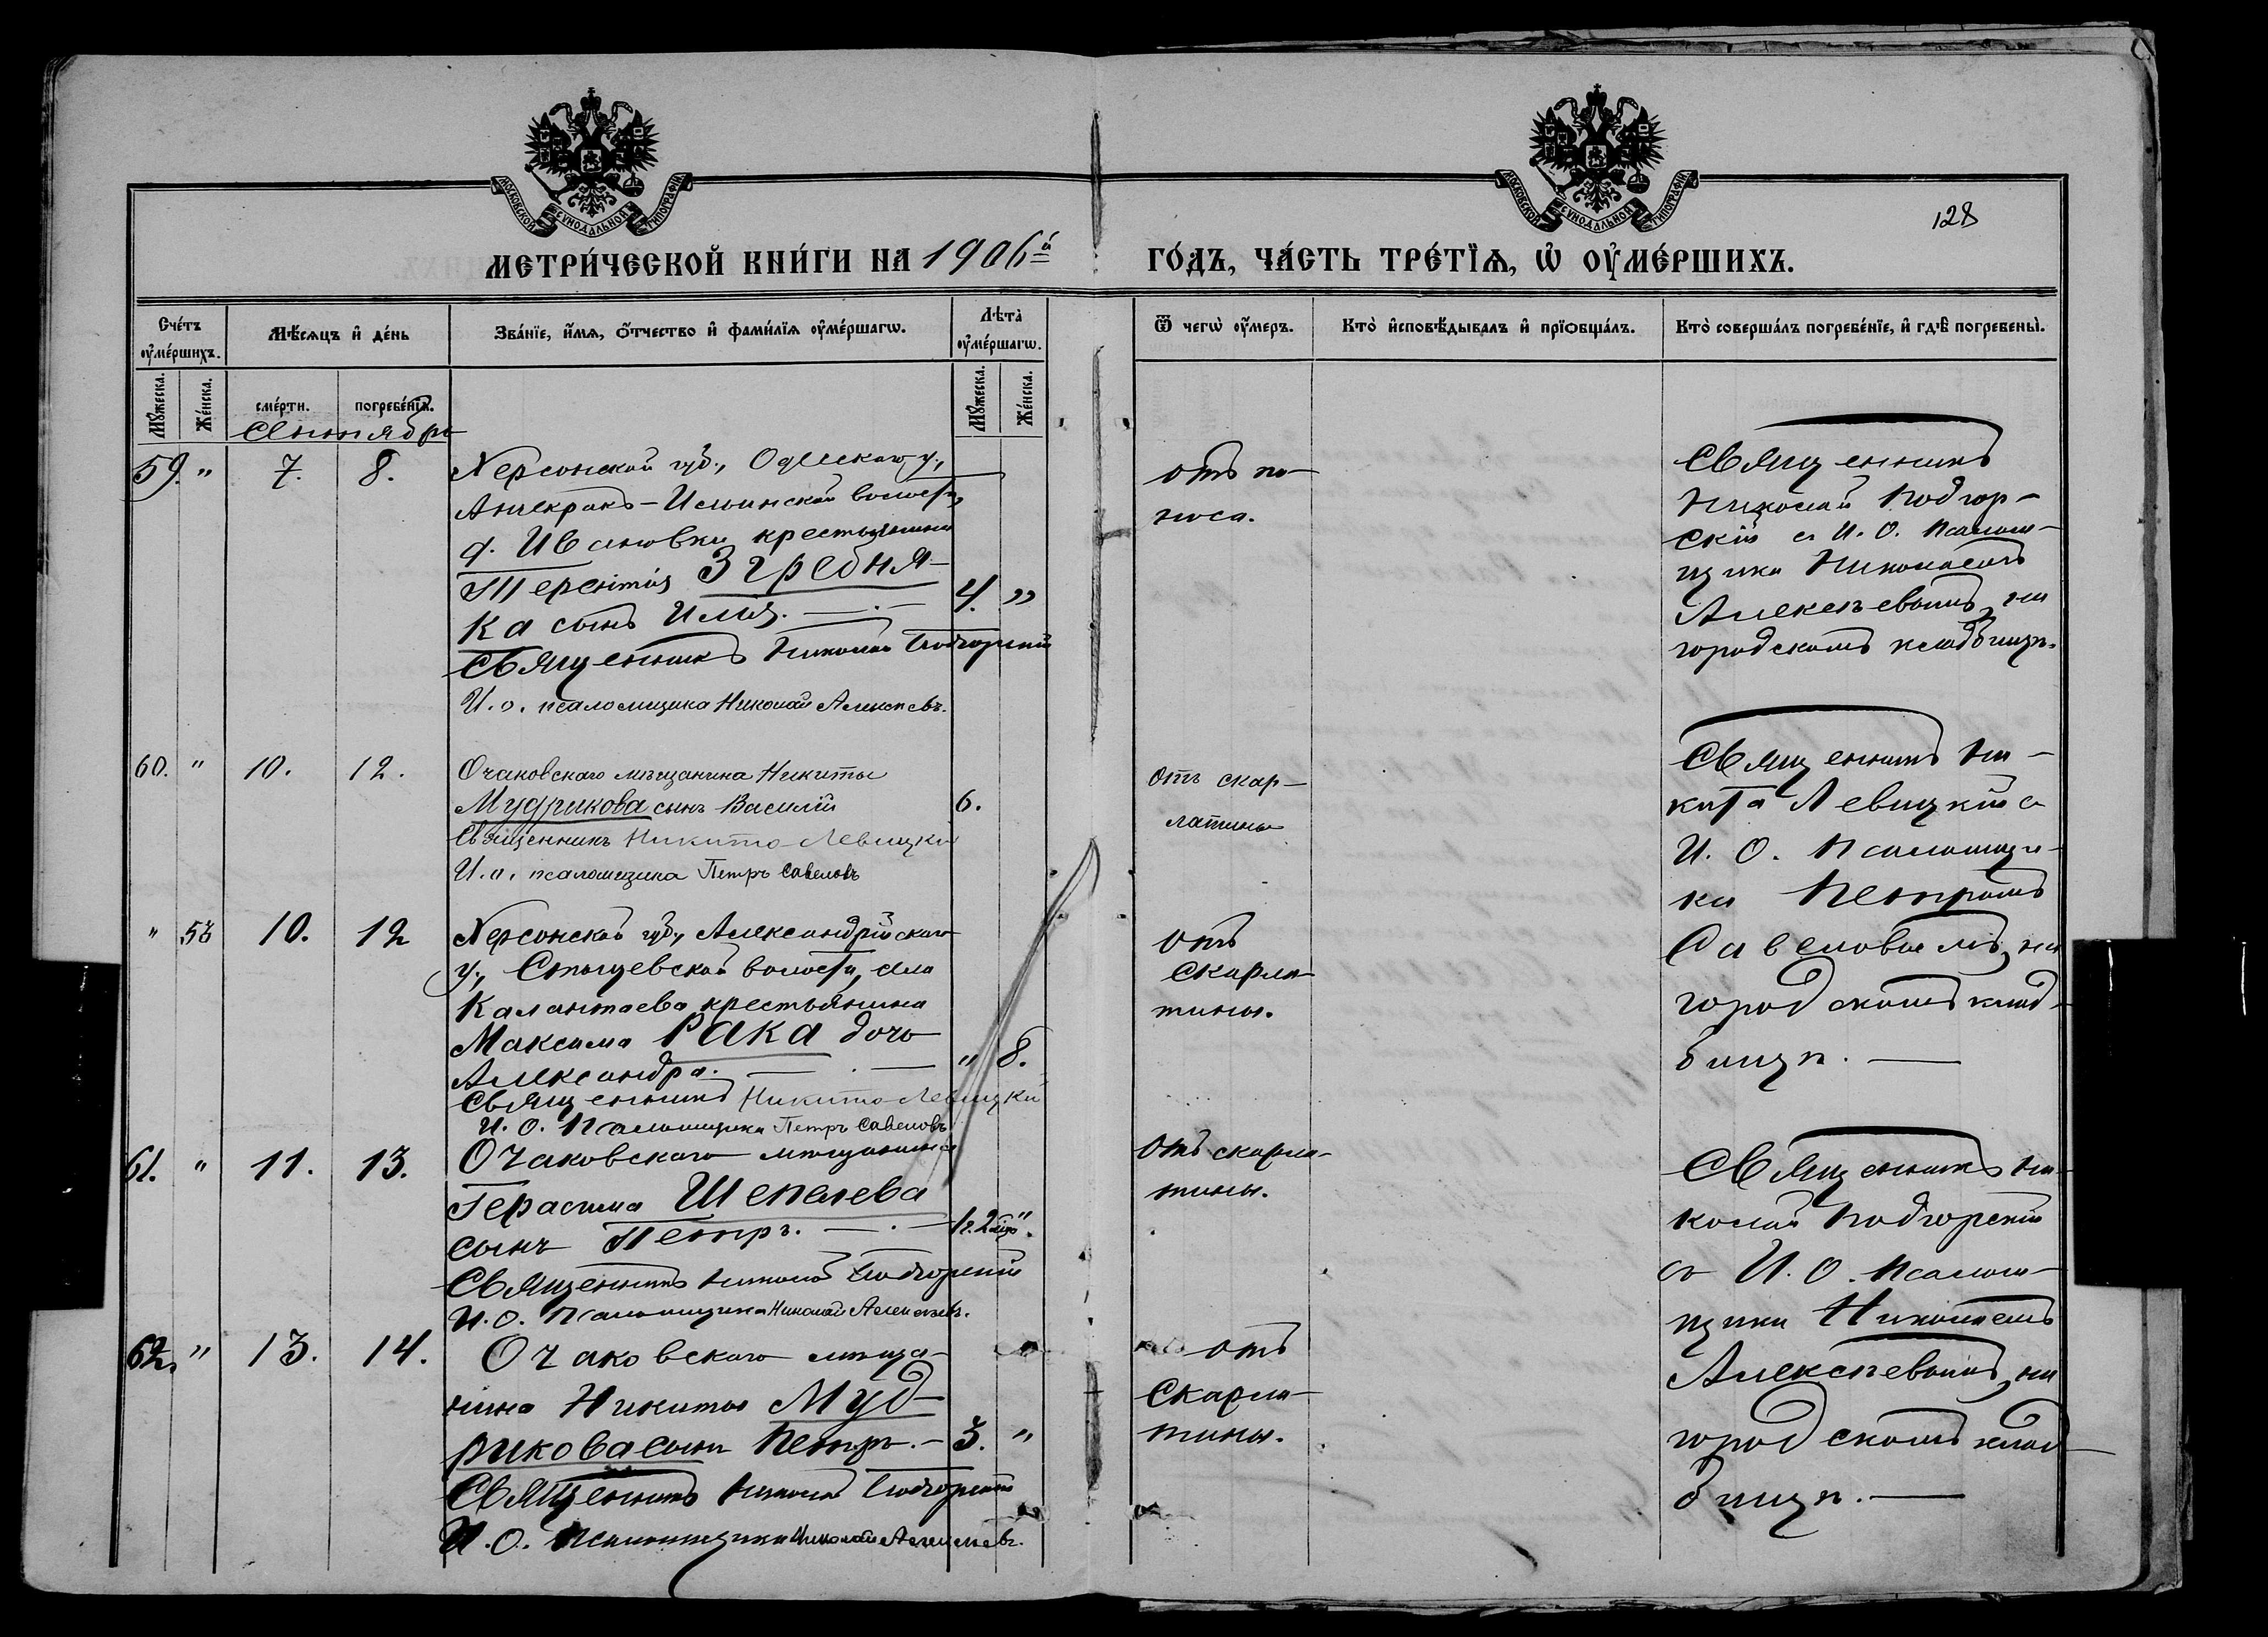 МОСКОВСКОЙ СѴНОДАЛЬНОЙ ТИПОГРАФІИ
МОСКОВСКОЙ СѴНОДАЛЬНОЙ ТИПОГРАФІИ
128
МЕТРИ́ЧЕСКОЙ КНИ́ГИ НА 1906й
ГО́ДЪ, ЧА́СТЬ ТРЕ́ТЇѦ, Ѡ҆ ОУ҆МЕ́РШИХЪ.
Сче́тъ оу҆ме́ршихъ.
Мѣ́сяцъ и҆ де́нь
Зва́нїе, и҆́мя, ѻ҆́тчество и҆ фами́лїя оу҆ме́ршагѡ.
Лѣ́та оу҆ме́ршагѡ.
Ѿ чегѡ̀ оу҆́меръ.
Кто̀ и҆сповѣ́дывалъ и҆ прїѻбща́лъ.
Кто̀ соверша́лъ погребе́нїе, и҆ гдѣ̀ погребены̀.
Мꙋ́жеска.
Же́нска.
сме́рти.
погребе́нїя.
Мꙋ́жеска.
Же́нска.
Сентябрь
59. " 7. 8.
Херсонской губ., Одесскаго у.,
Анчекракъ-Ильинской волости,
д. Ивановки крестьянина
Терентія Згребня-
ка сынъ Илія. — . —
4. "
Священникъ Николай Подгорскій
И. о. псаломщика Николай Алексѣевъ.
отъ по-
носа.
Священникъ
Николай Подгор-
скій съ И. О. Псалом-
щика Николаемъ
Алексѣевымъ, на
городскомъ кладбищѣ.
60. " 10. 12.
Очаковскаго мѣщанина Никиты
Мудрикова сынъ Василій
6.
Священникъ Никита Левицкій
И. о. псаломщика Петръ Савеловъ
Отъ скар-
латины
Священникъ Ни-
кита Левицкій съ
И. О. Псаломщи-
ка Петромъ
Савеловымъ, на
городскомъ клад-
бищѣ. —
" 58 10. 12
Херсонской губ., Александрійскаго
у., волости, села
Калантаева крестьянина
Максима Рака дочь
Александра. — . —
" 8.
Священникъ Никита Левицкій
И. О. Псаломщика Петръ Савеловъ
Отъ
Скарла-
тины.
61. " 11. 13.
Очаковскаго мѣщанина
Герасима Шепелева
сынъ Петръ. — . —
1 г. 2 мѣс. "
Священникъ Николай Подгорскій
И. О. Псаломщика Николай Алексѣевъ.
Отъ скарла-
тины.
Священникъ Ни-
колай Подгорскій
съ И. О. Псалом-
щика Николаемъ
Алексѣевымъ, на
городскомъ клад-
бищѣ. —
62. " 13. 14.
Очаковскаго мѣща-
нина Никиты Муд-
рикова сынъ Петръ. —
3. "
Священникъ Николай Подгорскій
И. О. Псаломщика Николай Алексѣевъ.
Отъ
Скарла-
тины.